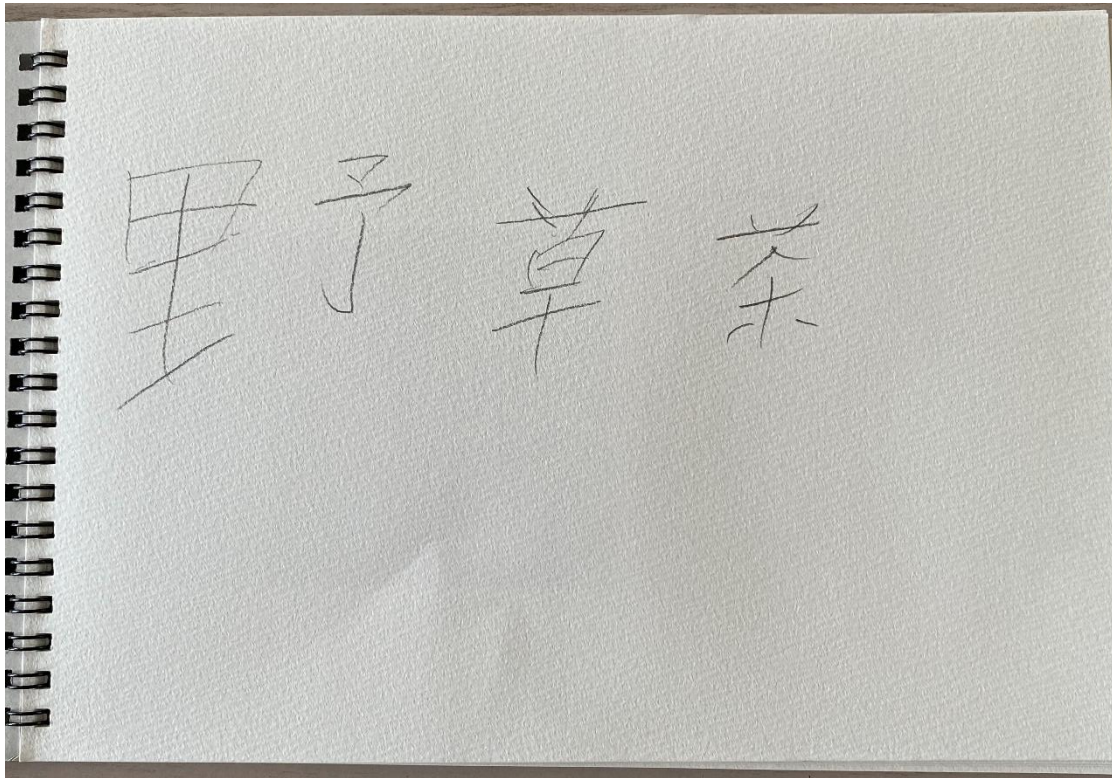 野草茶